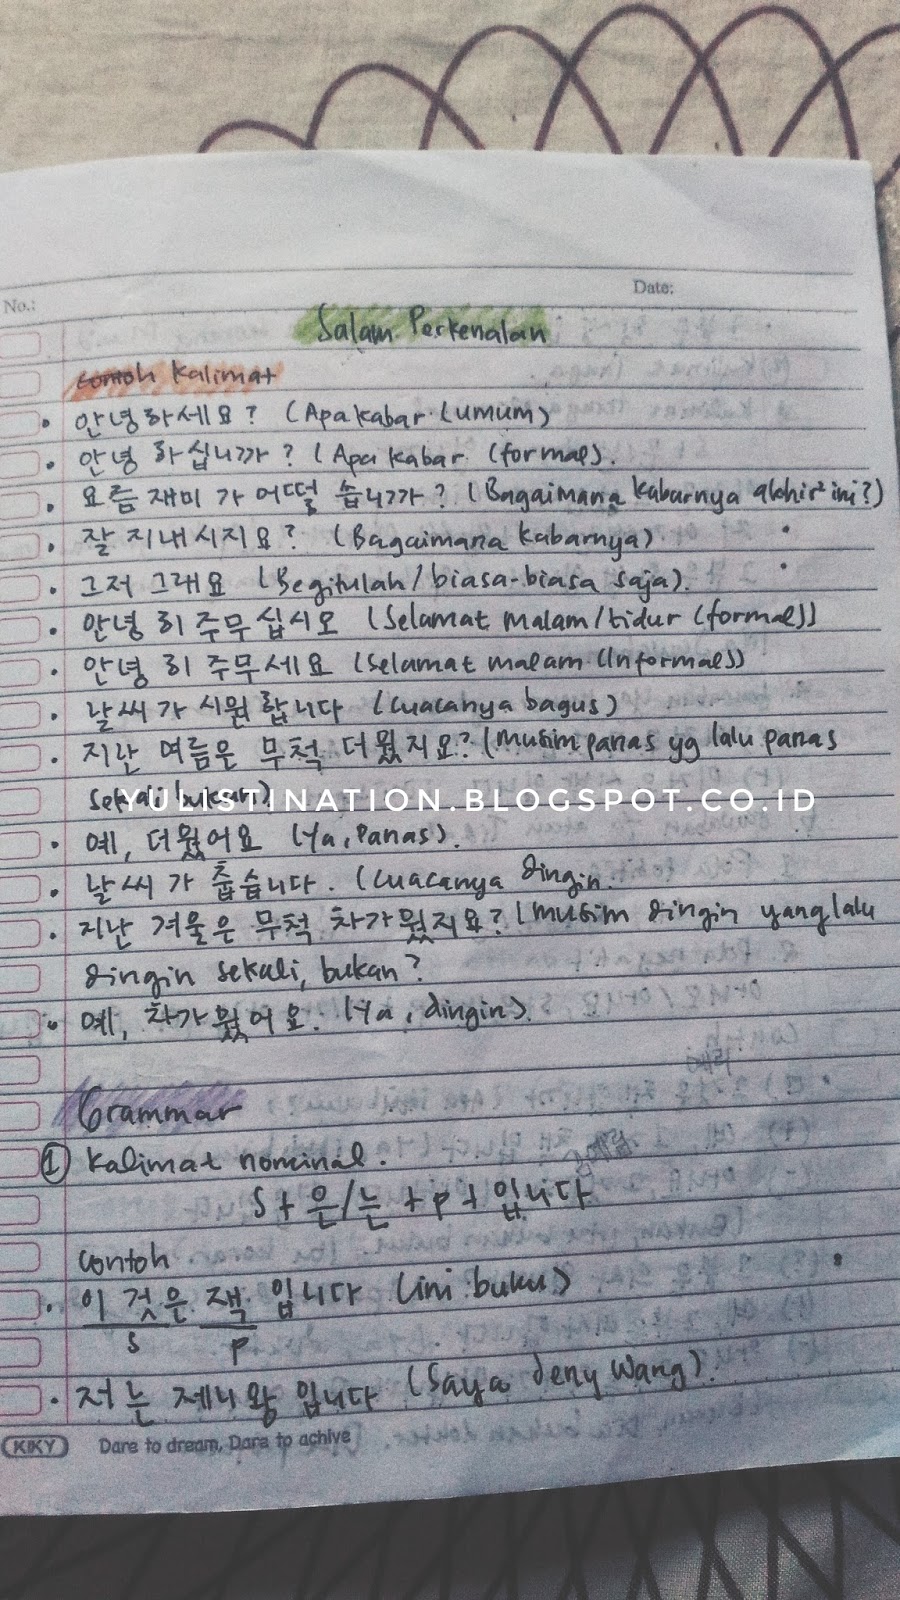 No.:
Date:
Salam Perkenalan
Contoh Kalimat
• 안녕하세요? (Apa kabar (umum)
• 안녕 하십니까? (Apa kabar (formal).
• 요즘 재미가 어떨 습니까? (Bagaimana kabarnya akhir² ini?)
• 잘 지내시지요? (Bagaimana kabarnya)
• 그저 그래요 (Begitulah/biasa-biasa saja).
• 안녕 히 주무십시오 (Selamat malam/tidur (formal))
• 안녕 히 주무세요 (Selamat malam (Informal))
• 날씨가 시원합니다 (Cuacanya bagus)
• 지난 여름은 무척 더웠지요? (musim panas yg lalu panas
sekali bukan?)
YULISTINATION.BLOGSPOT.CO.ID
• 예, 더웠어요 (Ya, Panas).
• 날씨가 춥습니다. (Cuacanya dingin.
• 지난 겨울은 무척 차가웠지요? (musim dingin yang lalu
dingin sekali, bukan?
• 예, 차가웠어요. (Ya, dingin).
Grammar
① Kalimat nominal.
S + 은/는 + P + 입니다
Contoh
• 이 것은 잭 입니다 (ini buku)
S P
• 저는 제니왕 입니다 (Saya deny wang).
KIKY Dare to dream, Dare to achive